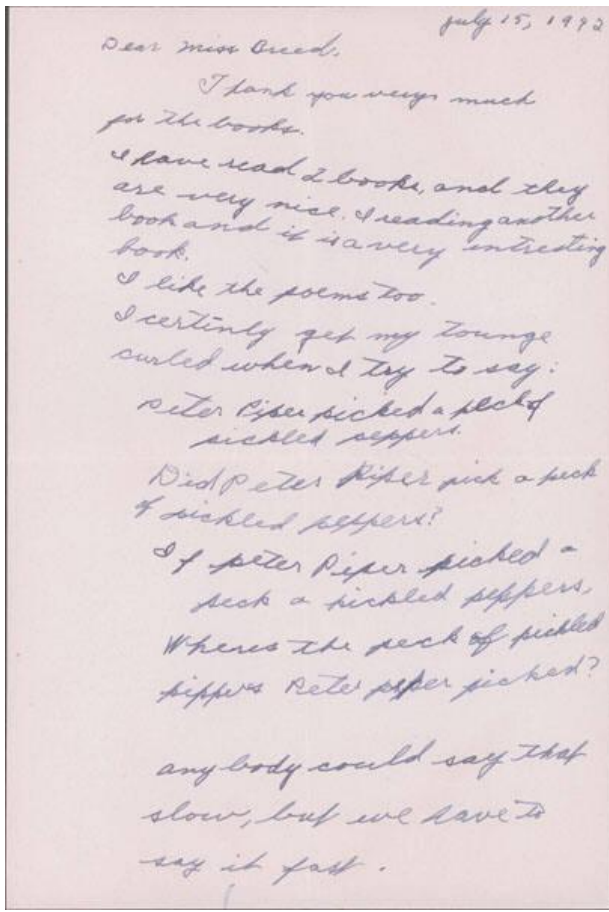 July 15, 1942
Dear Miss Breed,
Thank you verys much
for the books.
I have read 2 books, and they
are very nice. I reading another
book and it is a very intresting
book.
I like the poems too.
I certinly get my tounge
curled when I try to say:
Peter Piper picked a peck of
pickled peppers.
Did Peter Piper pick a peck
of pickled peppers?
If peter Piper picked a
peck a pickled peppers,
Wheres the peck of pickled
pippers Peter piper picked?
anybody could say that
slow, but we have to
say it fast.